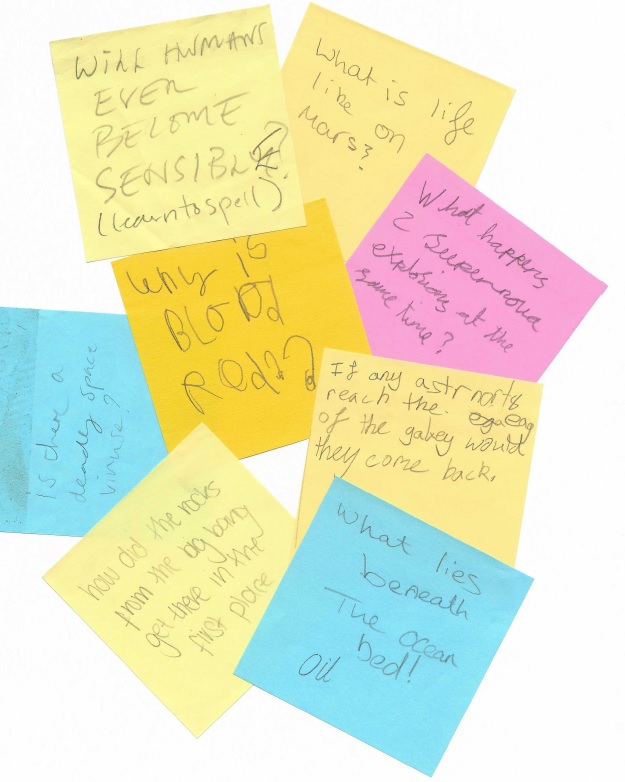 WiLL HUMANS
EVER
BECOME
SENSIBLE?
(learn to spell)
What is life
like on
Mars?
What happens
2 Supernova
explosions at the
same time?
Why is
BLOOD
Red??
Is there a
deadly space
viruse?
If any astrnorts
reach the
of the galaxey would
they come back.
how did the rocks
from the big bang
get there in the
first place
What lies
beneath
The ocean
bed!
Oil